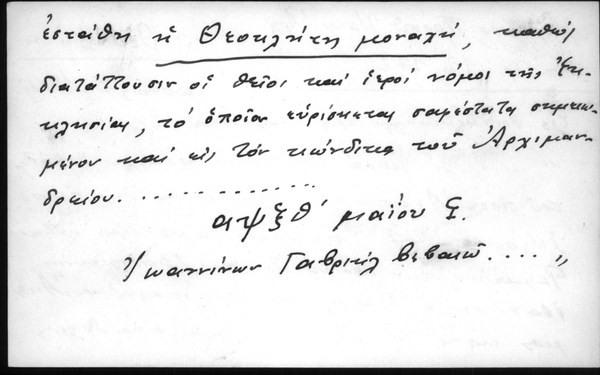 ἐστάθη ἡ Θεοκλήτη μοναχή, καθὼς
διατάττουσιν οἱ θεῖοι καὶ ἱεροὶ νόμοι τῆς Ἐκ-
κλησίας, τὸ ὁποῖον εὑρίσκεται σαφέστατα σημειω-
μένον καὶ εἰς τὸν κώνδικα τοῦ Ἀρχιμαν-
δρείου. . . . . . . . . . . . . . .
αψξθ´ μαΐου ϛ.
Ἰωαννίνων Γαβριὴλ βεβαιῶ. . . . „